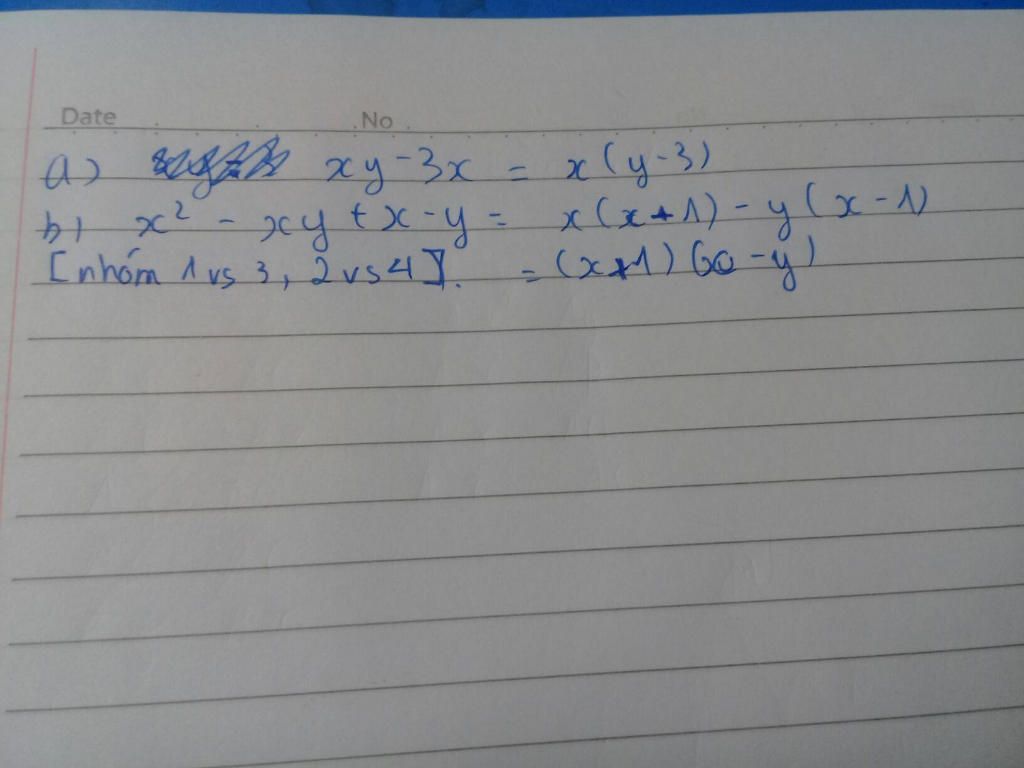 Date No
a) xy - 3x = x(y-3)
b) x² - xy + x - y = x(x+1) - y(x-1)
[nhóm 1 vs 3, 2 vs 4]. = (x+1)(x-y)